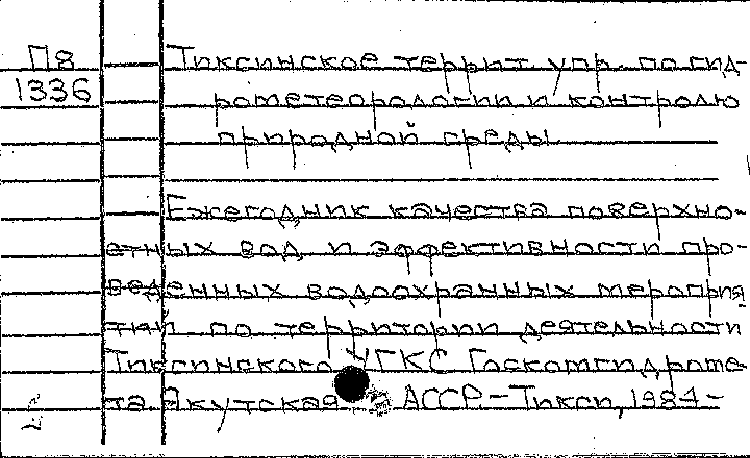 П8 Тиксинское террит. упр. по гид-
1336 рометеорологии и контролю
природной среды
Ежегодник качества поверхно-
стных вод и эффективности про-
веденных водоохранных мероприя
тий по территории деятельности
Тиксинского УГКС Госкомгидроме-
та Якутская АССР.-Тикси, 1984-